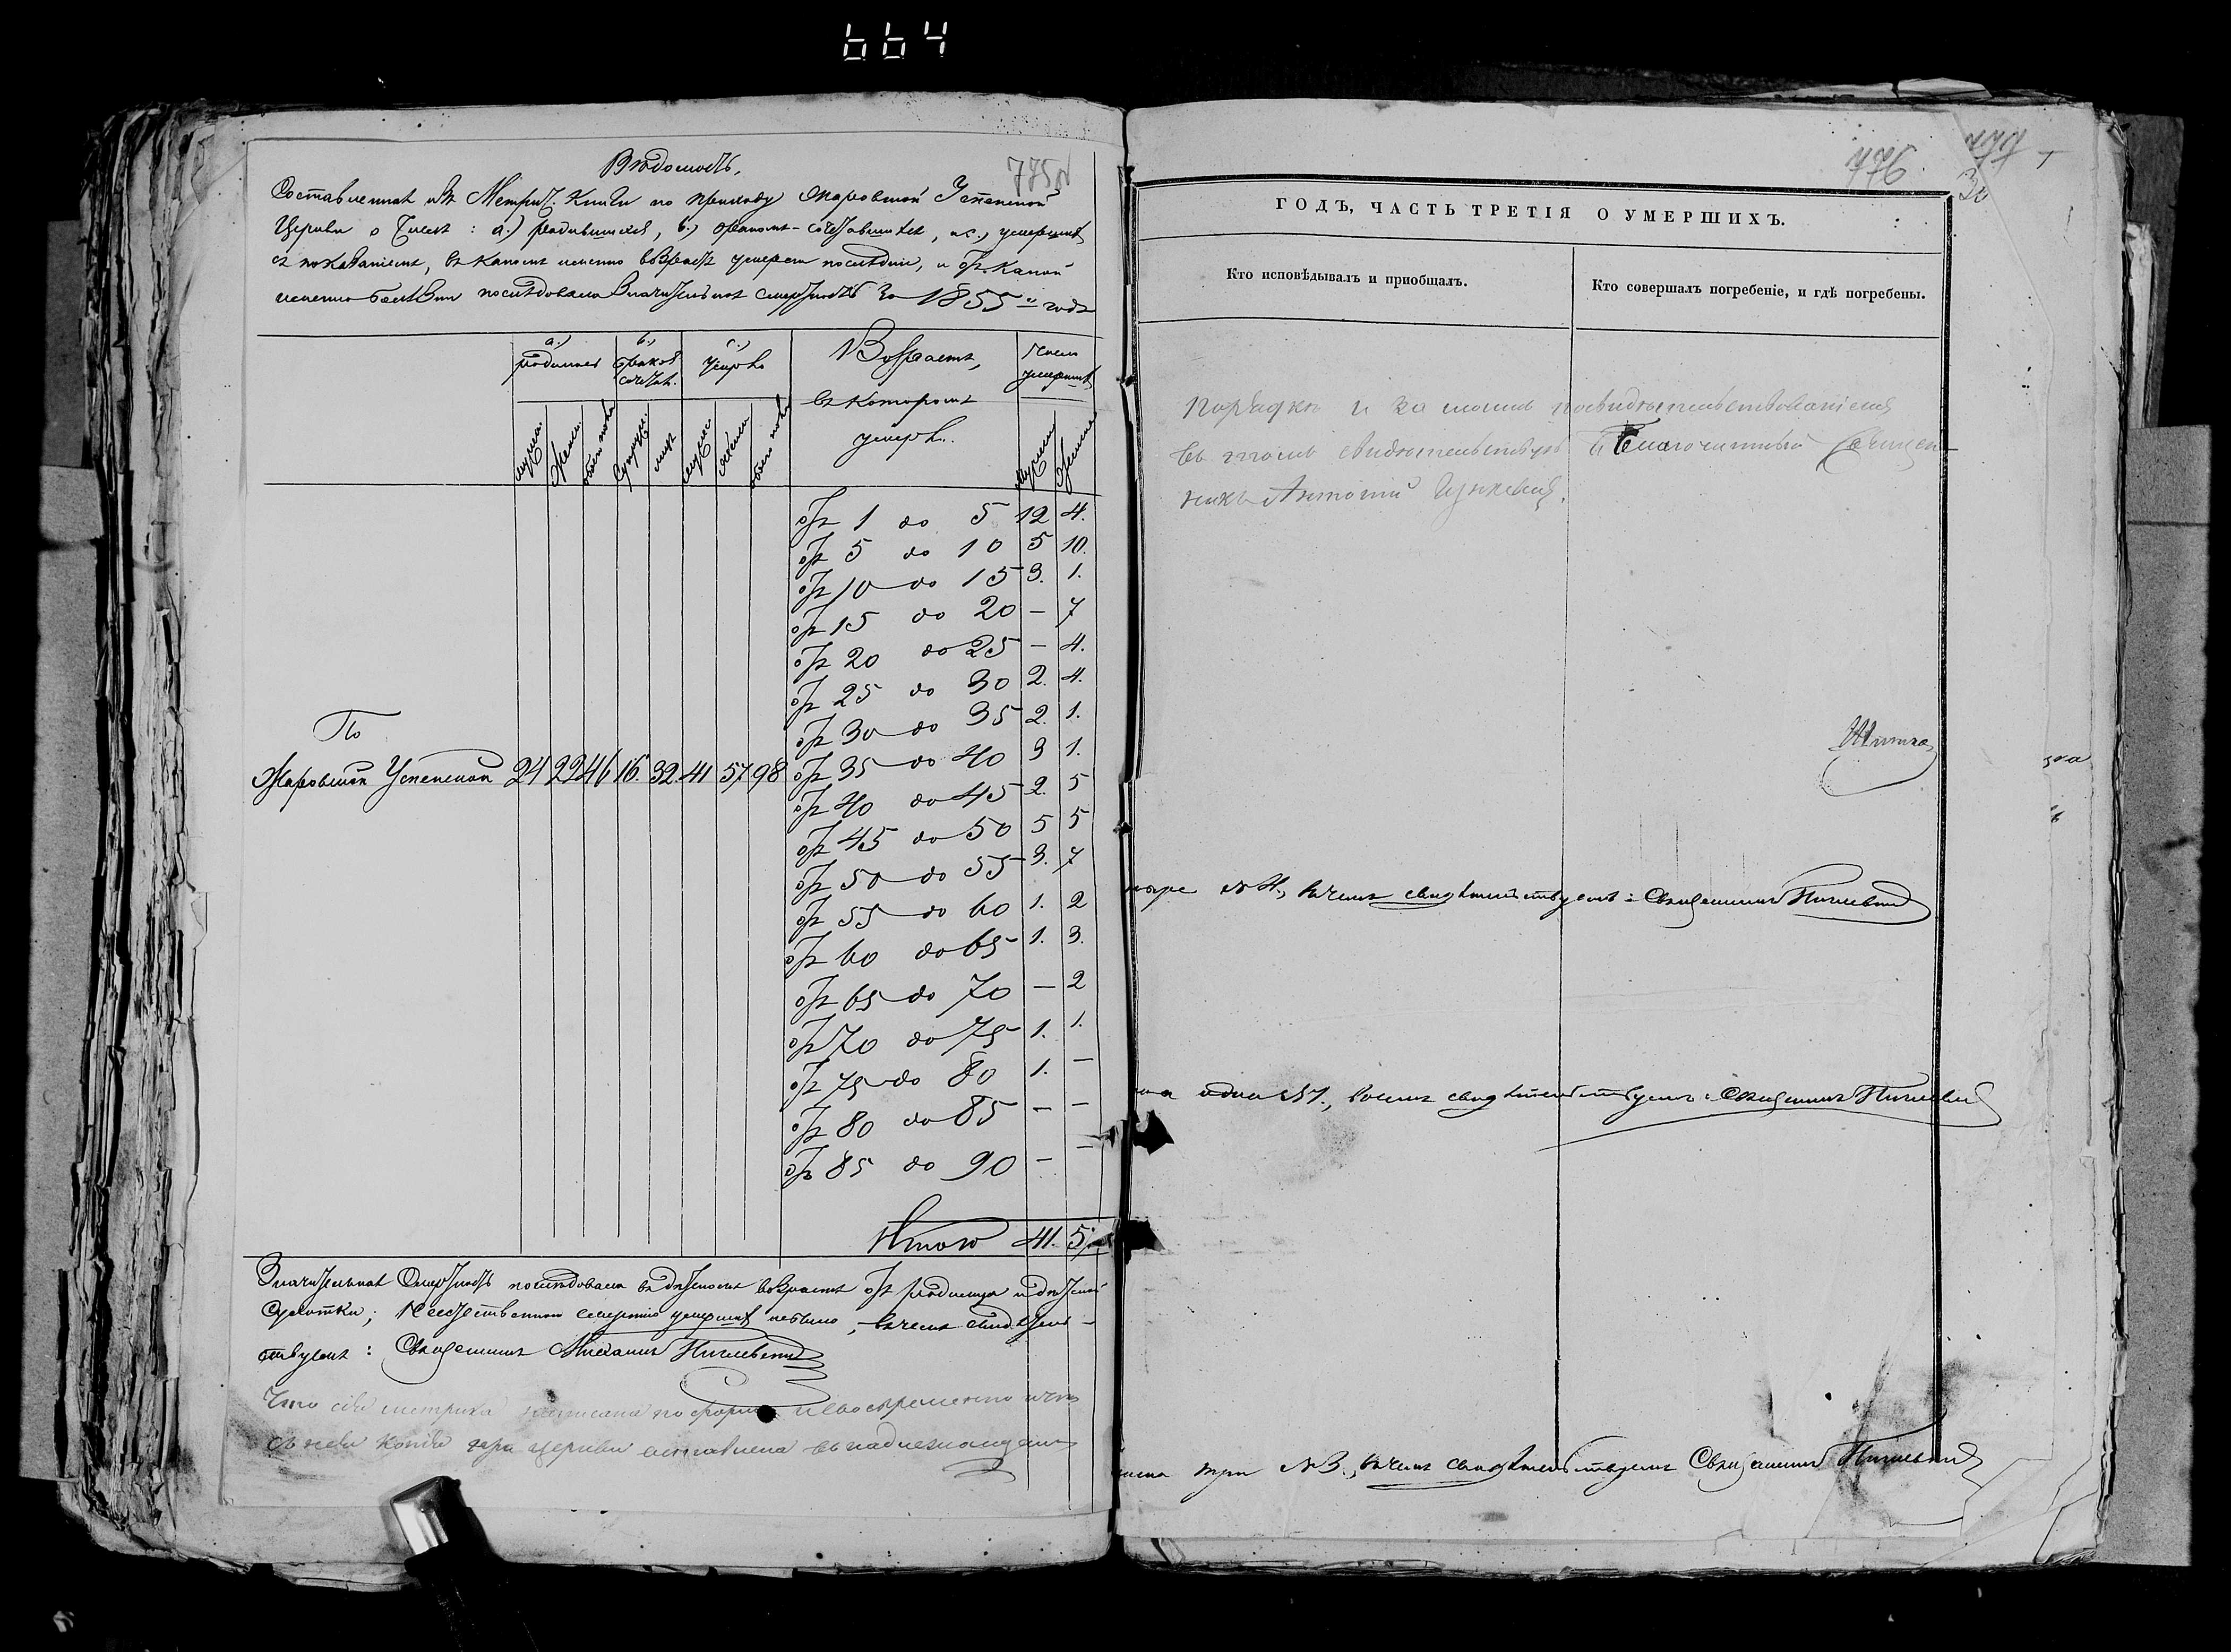 664
Вѣдомость,
775
Составленная изъ Метрич. Книги по приходу Жаровской Успенской
Церкви о числѣ: а.) родившихся, б.) бракомъ-сочетавшихся, и с.) умершихъ
съ показаніемъ, въ какомъ именно возрастѣ умерли послѣдніи, и отъ какой
именно болѣзни послѣдовала значительная смертность за 1855 годъ
а.) родилось
б.) браковъ сочет.
с.) умерло
Возрастъ, въ которомъ умерло.
число умершихъ
мужска. женска. обоего пола супруж. лицъ мужес. женска обоего пола мужска женска
отъ 1 до 5 12 4.
отъ 5 до 10 5 10.
отъ 10 до 15 3. 1.
отъ 15 до 20 — 7
отъ 20 до 25 — 4.
отъ 25 до 30 2. 4.
отъ 30 до 35 2. 1.
отъ 35 до 40 3 1.
отъ 40 до 45 2. 5
отъ 45 до 50 5 5
отъ 50 до 55 3. 7
отъ 55 до 60 1. 2
отъ 60 до 65 1. 3.
отъ 65 до 70 — 2
отъ 70 до 75 1. 1.
отъ 75 до 80 1. —
отъ 80 до 85 — —
отъ 85 до 90 — —
По
Жаровской Успенской 24 22 46 16. 32. 41 57 98
Итого 41. 57
Значительная Смертность послѣдовала въ дѣтскомъ возрастѣ отъ родимца и дѣтской
сухотки; Неестественною смертію умершихъ небыло, въ чемъ свидѣтель-
ствуетъ: Священникъ Михаилъ
Что сія метрика написана по формѣ и своевременно и что
съ нея копія при церкви оставлена въ надлежащемъ
776
ГОДЪ, ЧАСТЬ ТРЕТІЯ О УМЕРШИХЪ.
Кто исповѣдывалъ и приобщалъ.
Кто совершалъ погребеніе, и гдѣ погребены.
порядкѣ и за моимъ посвидѣтельствованіемъ
въ томъ свидѣтельствую Благочинный Священ-
никъ Антоній
№ 4., въ чемъ свидѣтельствуетъ: Священникъ
одна № 1., въ чемъ свидѣтельствуетъ: Священникъ
три № 3., въ чемъ свидѣтельствуетъ Священникъ